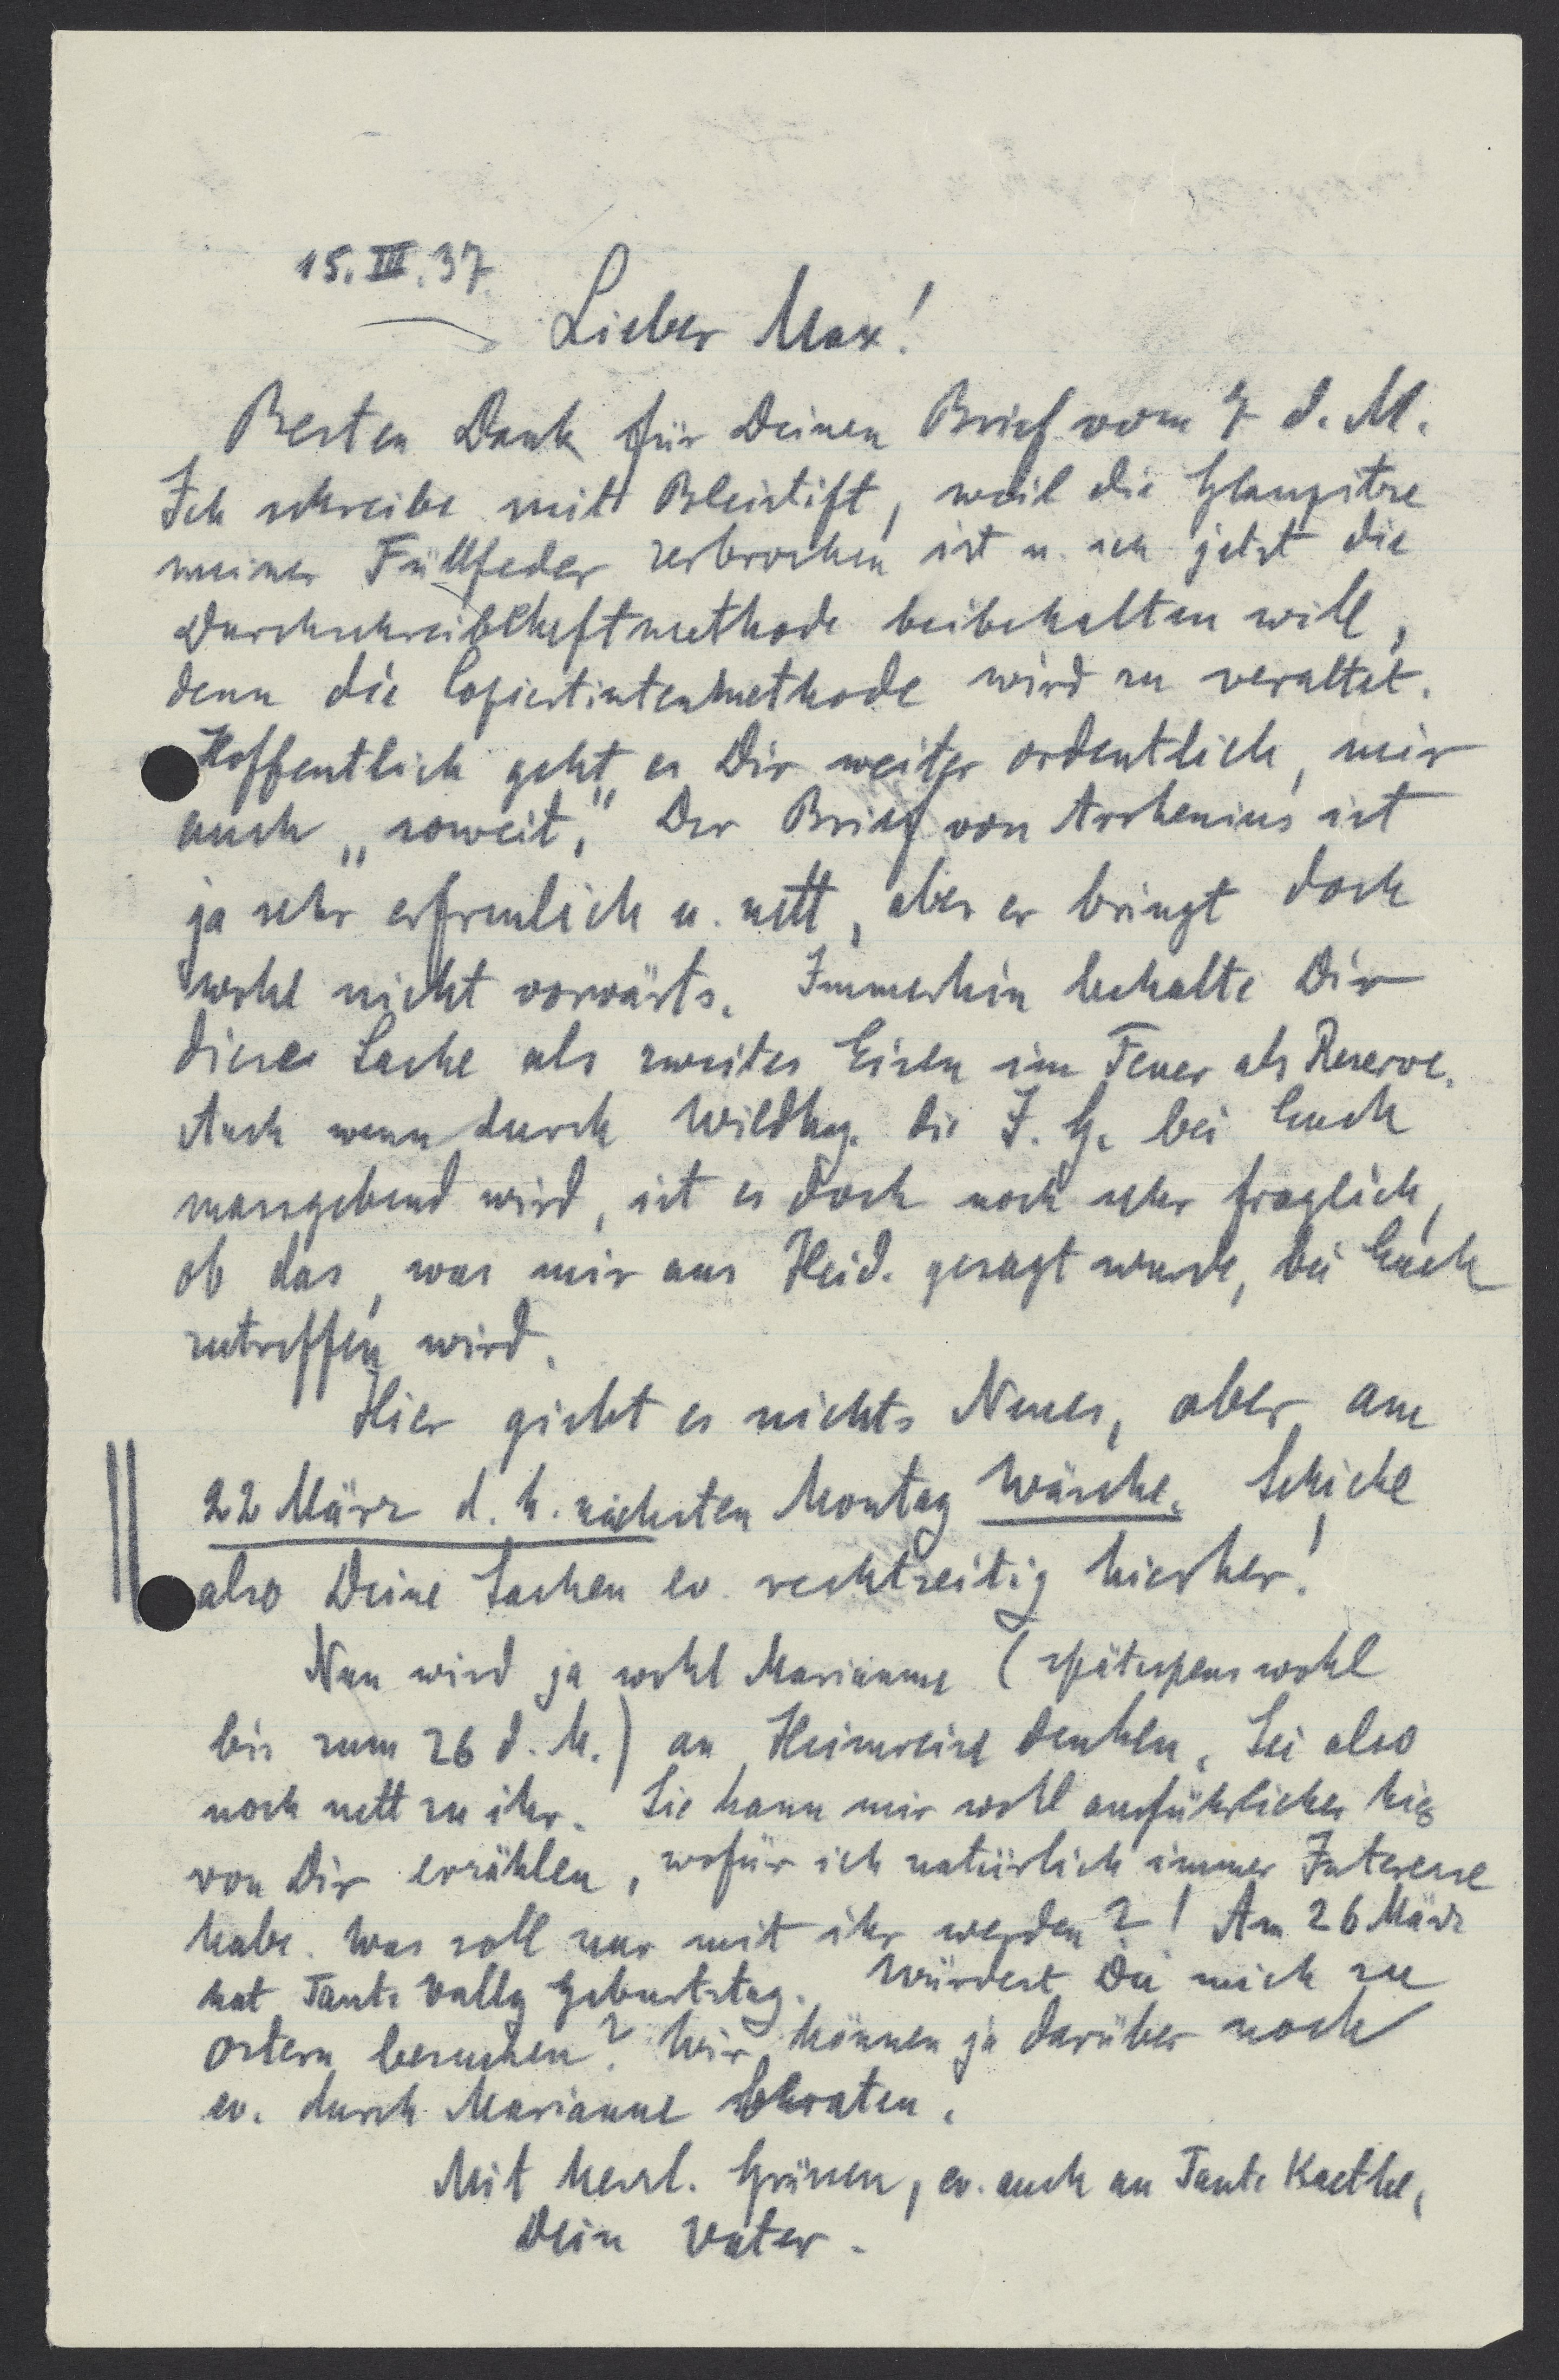 15. III. 37.
Lieber Max!
Besten Dank für Deinen Brief vom 7 d. M.
Ich schreibe mit Bleistift, weil die Glasspitze
meiner Füllfeder zerbrochen ist u. ich jetzt die
Durchschreibheftmethode beibehalten will,
denn die Copiertintenmethode wird zu veraltet.
Hoffentlich geht es Dir weiter ordentlich, mir
auch „soweit." Der Brief von Arrhenius ist
ja sehr erfreulich u. nett, aber er bringt doch
wohl nicht vorwärts. Immerhin behalte Dir
diese Sache als zweites Eisen im Feuer als Reserve.
Auch wenn durch Wildhg. die I. G. bei Euch
massgebend wird, ist es doch noch sehr fraglich,
ob das, was mir aus Heid. gesagt wurde, bei Euch
zutreffen wird.
Hier giebt es nichts Neues, aber am
22 März d. h. nächsten Montag Wäsche. Schicke
also Deine Sachen ev. rechtzeitig hierher!
Nun wird ja wohl Marianne (spätestens wohl
bis zum 26 d. M.) an Heimreise denken. Sei also
noch nett zu ihr. Sie kann mir wohl ausführlicher hier
von Dir erzählen, wofür ich natürlich immer Interesse
habe. Was soll nur mit ihr werden?! Am 26 März
hat Tante Vally Geburtstag. Würdest Du mich zu
Ostern besuchen? Wir können ja darüber noch
ev. durch Marianne beraten.
Mit herzl. Grüssen, ev. auch an Tante Kaethe,
Dein Vater.